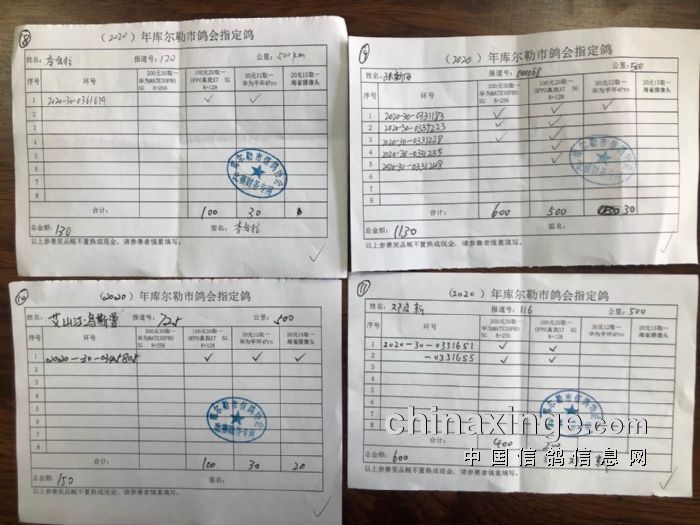 ⑧
（2020）年库尔勒市鸽会指定鸽
报道号：120 公里：500km
序号 环号 200元30取一 华为MATE30PRO 5G 8+256 100元20取一 OPPO真我X7 5G 8+128 30元12取一 华为手环4Pro 20元15取一 海雀摄像头
1 2020-30-0361679 ✓ ✓
2
3
4
5
6
7
8
合计： 100 30
总金额：130 签名：
以上参赛奖品概不置换成现金，请参赛者慎重填写。
库尔勒市信鸽协会
比赛财务专用
⑨
（2020）年库尔勒市鸽会指定鸽
姓名： 报道号：800068 公里：500
序号 环号 200元30取一 华为MATE30PRO 5G 8+256 100元20取一 OPPO真我X7 5G 8+128 30元12取一 华为手环4Pro 20元15取一 海雀摄像头
1 2020-30-0331183
2 2020-30-0339223
3 2020-30-0331228
4 2020-30-0331235
5 2020-30-0331248
6
7
8
合计： 600 500 30
总金额：1130 签名：
以上参赛奖品概不置换成现金，请参赛者慎重填写。
库尔勒市信鸽协会
比赛财务专用
⑩
（2020）年库尔勒市鸽会指定鸽
姓名：艾山江·乌斯曼 报道号：725 公里：500
序号 环号 200元30取一 华为MATE30PRO 5G 8+256 100元20取一 OPPO真我X7 5G 8+128 30元12取一 华为手环4Pro 20元15取一 海雀摄像头
1 ✓ ✓ ✓
2
3
4
5
6
7
8
合计： 100 30 20
总金额：150 签名：
以上参赛奖品概不置换成现金，请参赛者慎重填写。
库尔勒市信鸽协会
比赛财务专用
⑪
（2020）年库尔勒市鸽会指定鸽
姓名： 报道号：116 公里：500
序号 环号 200元30取一 华为MATE30PRO 5G 8+256 100元20取一 OPPO真我X7 5G 8+128 30元12取一 华为手环4Pro 20元15取一 海雀摄像头
1 2020-30-0331651 ✓ ✓
2 -0331655 ✓ ✓
3
4
5
6
7
8
合计： 400
总金额：600
以上参赛奖品概不置换成现金，请参赛者慎重填写。
库尔勒市信鸽协会
比赛财务专用
www.chinaxinge.com
中国信鸽信息网